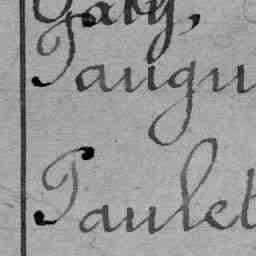 Gaty,
Taugu
Paulet